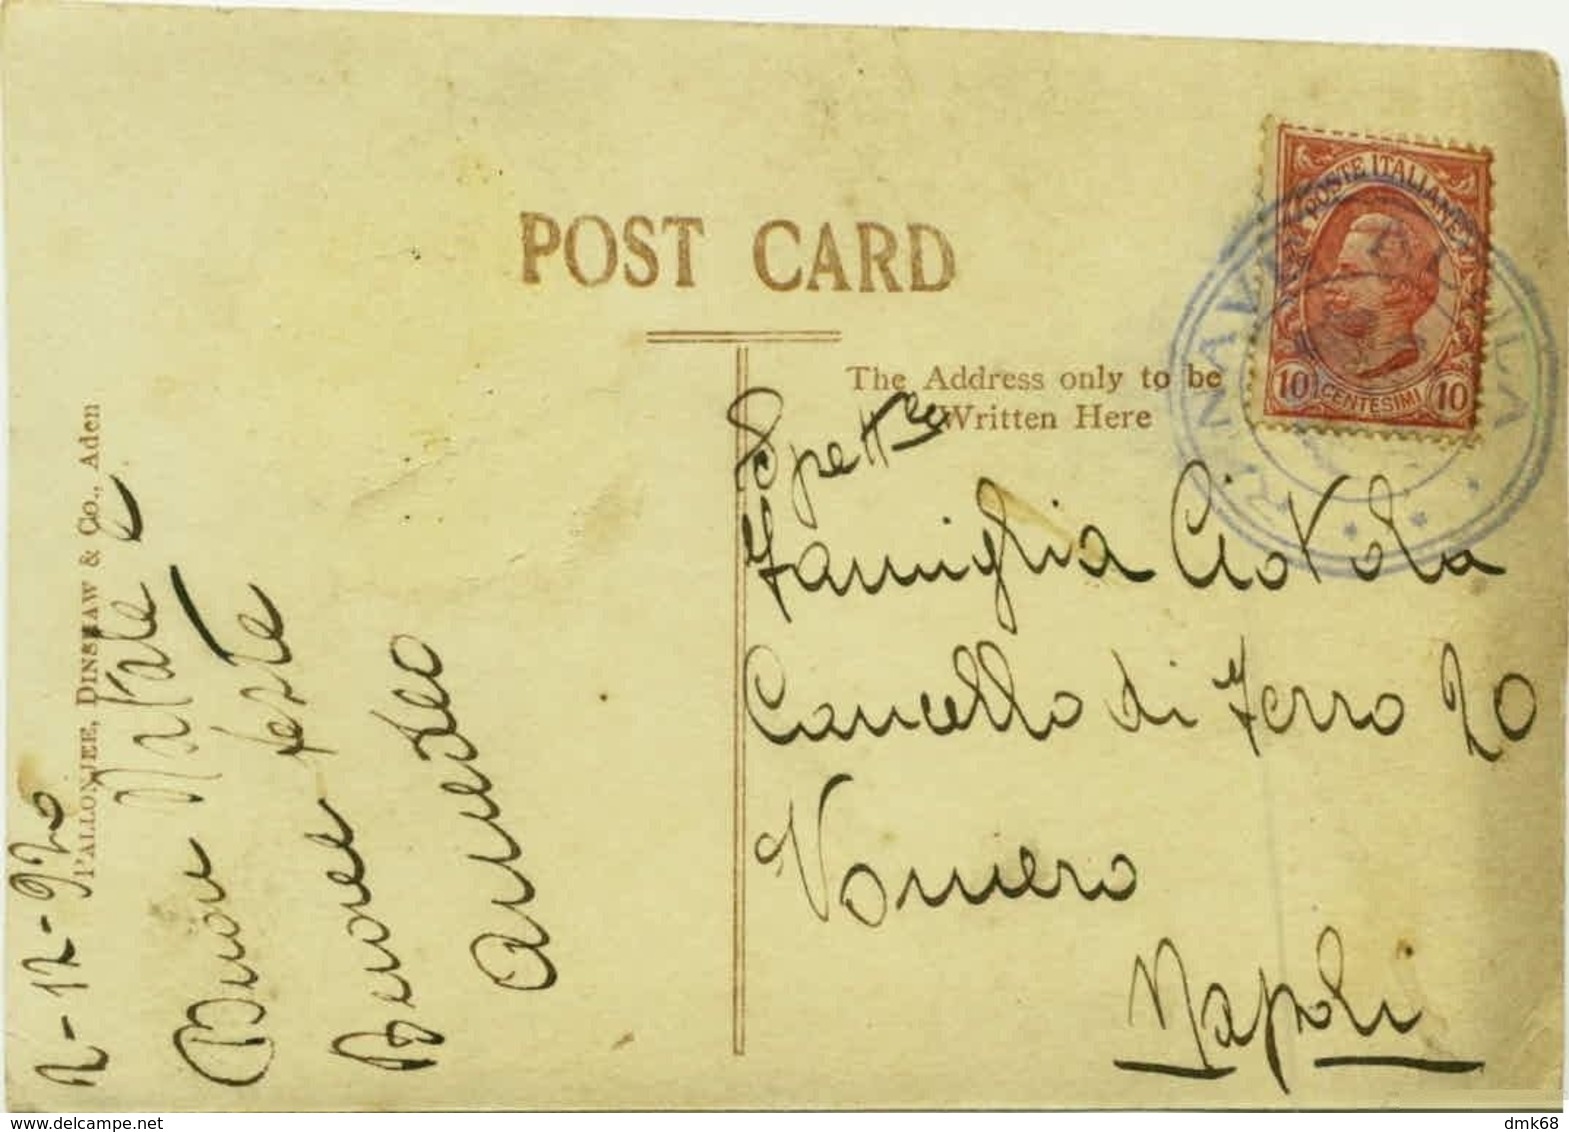 POST CARD
The Address only to be
Written Here
POSTE ITALIANE
10 CENTESIMI 10
R. NAVE PUGLIA
Spett.le
Famiglia Ciotola
Cancello di Ferro 20
Vomero
Napoli
PALLONJEE, DINSHAW & Co., Aden
2-12-920
Buon Natale e
Buone feste
Amedeo
www.delcampe.net
dmk68